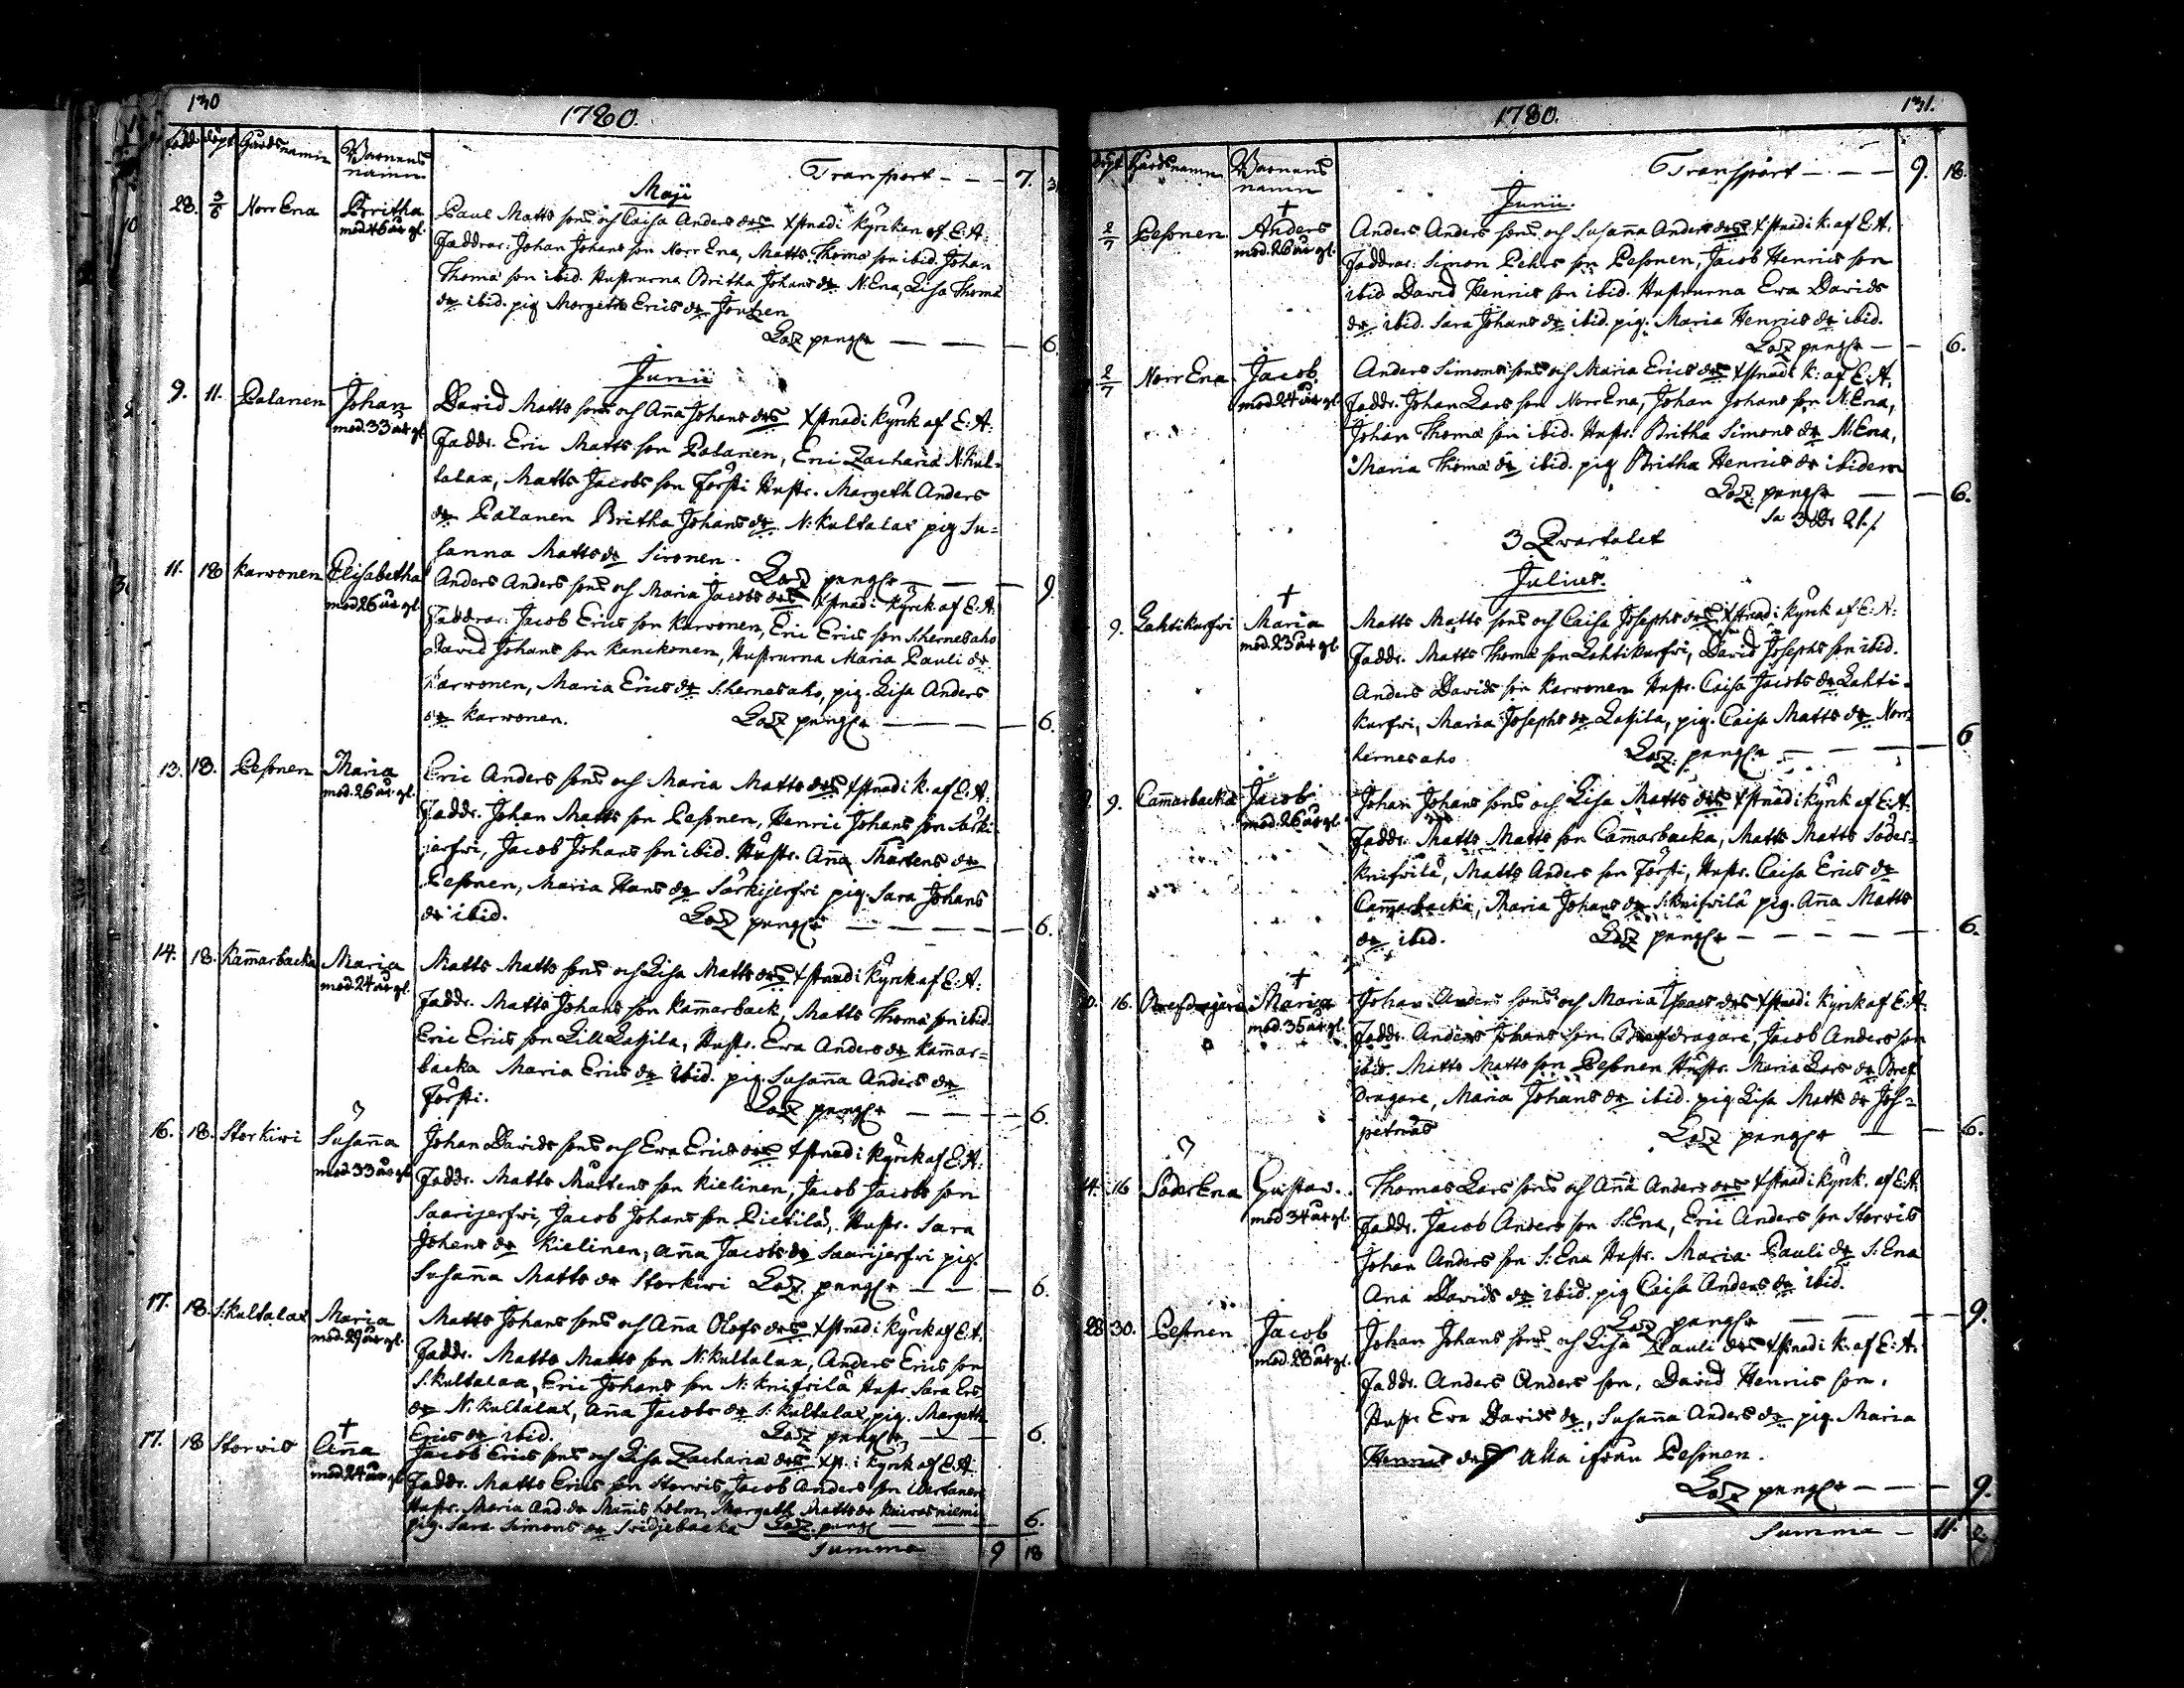 130
1780.
född döpt Gårds namn Barnens namn
Transport - - - 7. 3
Maji
28. 3/6 Norr Ena Britha mod. 46 år gl.
Paul Matts sons och Caisa Anders drs xstnad i kyrkan af E: A:
Faddrar: Johan Johans son Norr Ena, Matts Thomæ son ibid. Johan
Thomæ son ibid. Hustrurna Britha Johans dr N: Ena, Lisa Thomæ
dr ibid. pig Margetha Erics dr
peng 6.
Junii
9. 11. Palanen Johan mod. 33 år gl.
David Matts sons och Aña Johans drs xstnad i kyrk af E: A:
Faddr. Eric Matts son Palanen, Eric Zachariæ N: Kul-
talax, Matts Jacobs son Försti Hustr. Margeth Anders
dr Palanen Britha Johans dr N: Kultalax pig Su-
sanna Matts dr Sironen. peng 9
11. 18 Karwonen Elisabetha mod 26 år gl.
Anders Anders sons och Maria Jacobs drs xstnad i kyrk af E: A:
Faddrar: Jacob Erics son Karwonen, Eric Erics son S: hernesaho
David Johans son Kanckonen, Hustrurna Maria Pauli dr
Karwonen, Maria Erics dr S: hernesaho, pig. Lisa Anders
dr Karwonen. peng 6.
13. 18. Pesonen Maria mod. 26 år gl.
Eric Anders sons och Maria Matts drs xstnad i k. af E: A:
Faddr. Johan Matts son Pesonen, Henric Johans son Särki-
jerfwi, Jacob Johans son ibid. Hustr. Aña Mårtens dr
Pesonen, Maria Hans dr Särkijerfwi pig. Sara Johans
dr ibid. peng 6.
14. 18. Kam̃arbacka Maria mod. 24 år gl.
Matts Matts sons och Lisa Matts drs xstnad i kyrk af E: A:
Faddr. Matts Johans son Kam̃arback, Matts Thomæ son ibid.
Eric Erics son Lill Lassila, Hustr. Ewa Anders dr Kam̃ar-
backa Maria Erics dr ibid. pig. Susaña Anders dr
Försti. peng 6.
16. 18. Storkiwi Susaña mod 33 år gl.
Johan Davids sons och Ewa Erics drs xstnad i kyrk af E: A:
Faddr. Matts Mårtens son Kielinen, Jacob Jacobs son
Saarijerfwi, Jacob Johans son Pietilä, Hustr. Sara
Johans dr Kielinen, Aña Jacobs dr Saarijerfwi pig.
Susaña Matts dr Storkiwi peng 6.
17. 18. S: Kultalax Maria mod. 29 år gl.
Matts Johans sons och Aña Olofs drs xstnad i kyrk af E: A:
Faddr. Matts Matts son N: Kultalax, Anders Erics son
S: Kultalax, Eric Johans son N: Knifsilä Hustr. Sara Ers
dr N: Kultalax, Aña Jacobs dr S: Kultalax, pig. Margeth
Erics dr ibid. peng 6.
17. 18 Storwis Aña mod. 24 år gl.
Jacob Erics sons och Lisa Zachariæ drs xst. i kyrk af E: A.
Faddr. Matts Erics son Storwis, Jacob Anders son Wertanen
Hustr. Maria And. dr Mañisholm, Margeth Matts dr
pig. Sara Simons dr peng 6.
Summa 9 18
1780. 131.
döpt Gårds namn Barnens namn
Transport - - - 9. 18.
Junii.
2/7 Pesonen Anders mod. 26 år gl.
Anders Anders sons och Susaña Anders drs xstnad i k. af E: A.
Faddrar: Simon Pehrs son Pesonen, Jacob Henrics son
ibid David Henrics son ibid. Hustrurna Ewa Davids
dr ibid. Sara Johans dr ibid. pig. Maria Henrics dr ibid.
peng 6.
2/7 Norr Ena Jacob mod 24 år gl.
Anders Simons sons och Maria Erics drs xstnad i k: af E: A:
Faddr. Johan Lars son Norr Ena, Johan Johans son N: Ena,
Johan Thomæ son ibid. Hustr. Britha Simons dr N: Ena,
Maria Thomæ dr ibid. pig Britha Henrics dr ibidem
peng 6.
3 Qvartalet
Julius.
9. Lahtikurfwi Maria mod. 23 år gl.
Matts Matts sons och Caisa Josephs drs xstnad i kyrk af E: A:
Faddr. Matts Thomæ son Lahtikurfwi, David Josephs son ibid.
Anders Davids son Karwonen Hustr. Caisa Jacobs dr Lahti-
kurfwi, Maria Josephs dr Lassila, pig. Caisa Matts dr Norr-
hernesaho peng 6
9. Cam̃arbacka Jacob mod. 26 år gl.
Johan Johans sons och Lisa Matts drs xstnad i kyrk af E: A.
Faddr. Matts Matts son Cam̃arbacka, Matts Matts Söder-
knifsilä, Matts Anders son Försti, Hustr. Caisa Erics dr
Cam̃arbacka, Maria Johans dr S: Knifsilä pig. Aña Matts
dr ibid. peng 6.
10. 16. Brefdragare Maria mod. 35 år gl.
Johan Anders sons och Maria Isaacs drs xstnad i kyrk af E: A:
Faddr. Anders Johans son Brefdragare, Jacob Anders son
ibid. Matts Matts son Pesonen Hustr. Maria Lars dr Bref
dragare, Maria Johans dr ibid. pig Lisa Matts dr Jos-
petriäs peng 6.
14. 16 Söder Ena Gustav. mod 34 år gl.
Thomas Lars sons och Aña Anders drs xstnad i kyrk. af E: A:
Faddr. Jacob Anders son S: Ena, Eric Anders son Storwis
Johan Anders son S: Ena Hustr. Maria Pauli dr S: Ena
Ana Davids dr ibid. pig Caisa Anders dr ibid.
peng 9.
28 30. Pesonen Jacob mod. 28 år gl.
Johan Johans sons och Lisa Pauli drs xstnad i k. af E: A:
Faddr. Anders Anders son, David Henrics son,
Hustr Ewa Davids dr, Susaña Anders dr pig. Maria
Henrics dr alla ifrån Pesonen.
peng 9.
Summa - 11. 2